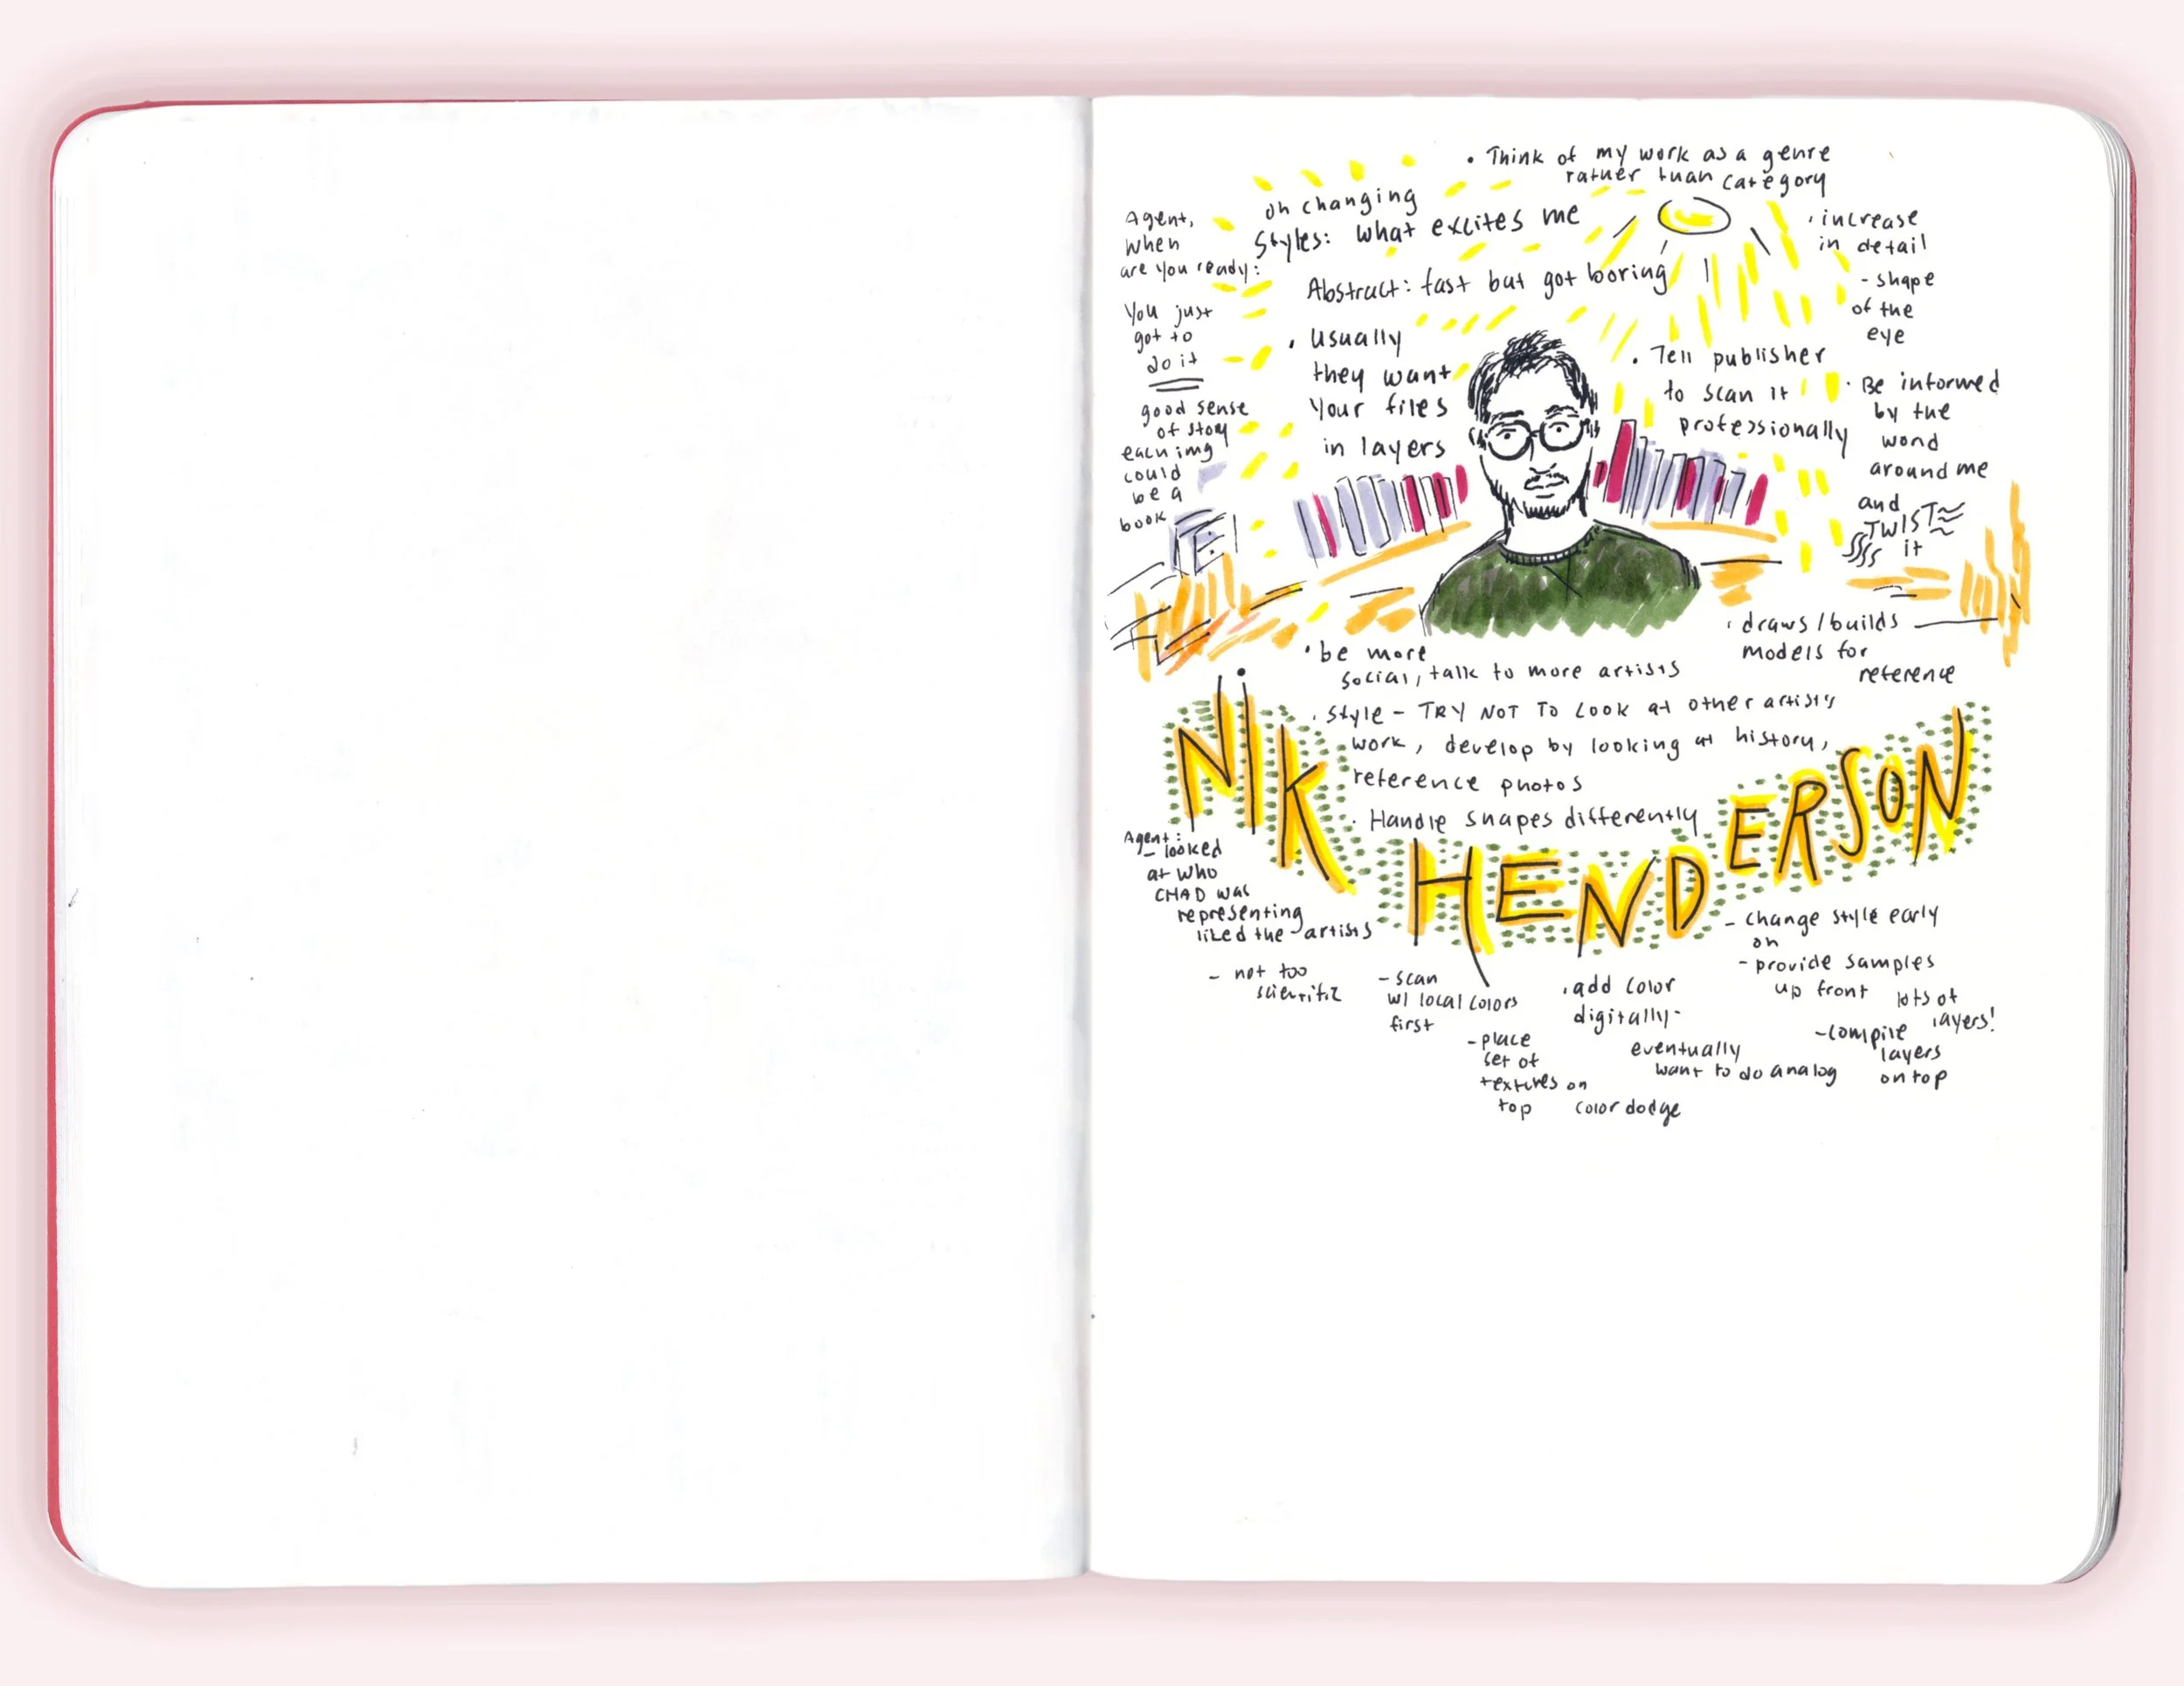 • Think of my work as a genre
rather than category
on changing
Styles: what excites me
Abstract: fast but got boring
Agent,
when
are you ready:
You just
got to
do it
good sense
of story
each img
could
be a
book
• usually
they want
your files
in layers
• Tell publisher
to scan it
professionally
• increase
in detail
- shape
of the
eye
• Be informed
by the
word
around me
and
TWIST
it
• draws / builds
models for
reference
• be more
social, talk to more artists
• Style - TRY NOT TO LOOK at other artists
work, develop by looking at history,
reference photos
• Handle shapes differently
NIK
HENDERSON
Agent:
- looked
at who
CHAD was
representing
liked the artists
- not too
scientific
- scan
w/ local colors
first
- place
set of
textures on
top
color dodge
• add color
digitally -
eventually
want to do analog
- change style early
on
- provide samples
up front
lots of
layers!
- compile
layers
on top